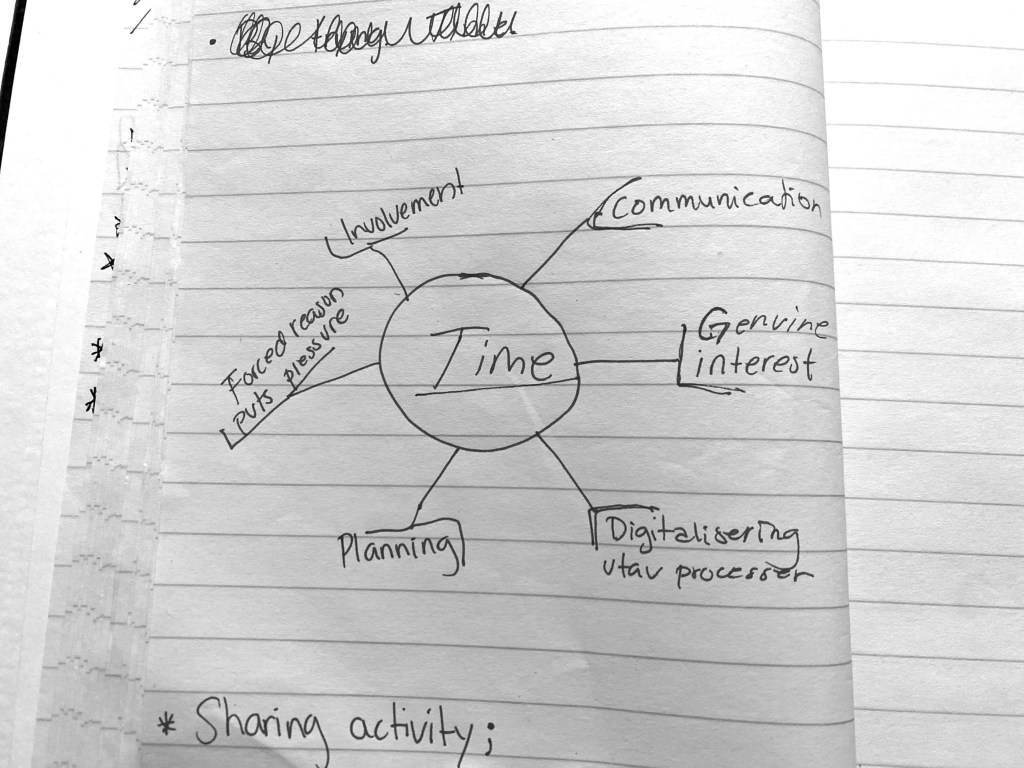 Involvement
Communication
Forced reason
puts pressure
Time
Genuine
interest
Planning
Digitalisering
utav processer
* Sharing activity;